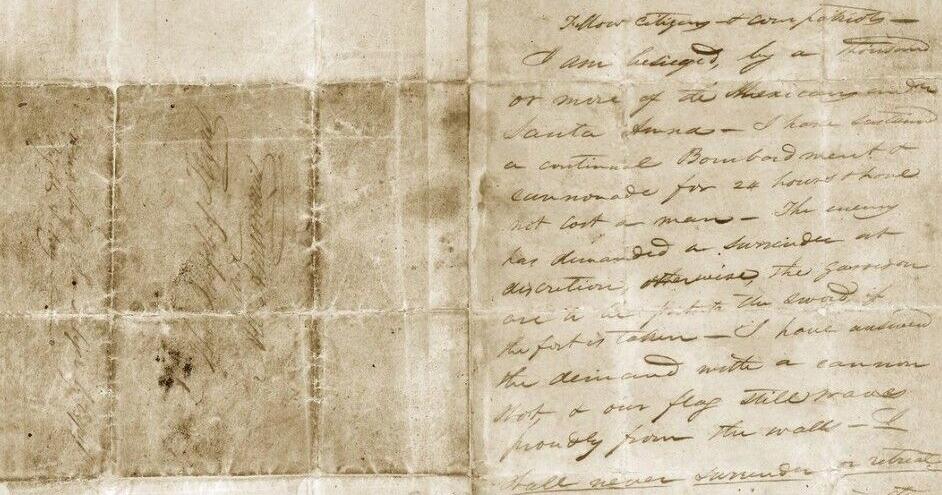 Fellow citizens & compatriots —
I am besieged, by a thousand
or more of the Mexicans under
Santa Anna — I have sustained
a continual Bombardment &
cannonade for 24 hours & have
not lost a man — The enemy
has demanded a surrender at
discretion, otherwise, the garrison
are to be put to the sword, if
the fort is taken — I have answered
the demand with a cannon
shot, & our flag still waves
proudly from the walls — I
shall never surrender or retreat